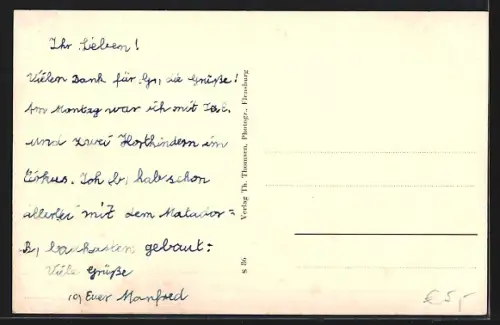 Ihr Lieben!
Vielen Dank für die Grüße!
Am Montag war ich mit
und zwei Hortkindern im
Cirkus. Ich hab schon
allerlei mit dem Matador-
baukasten gebaut.
Viele Grüße
Euer Manfred
S 56 Verlag Th. Thomsen, Photogr., Flensburg
€ 5,-